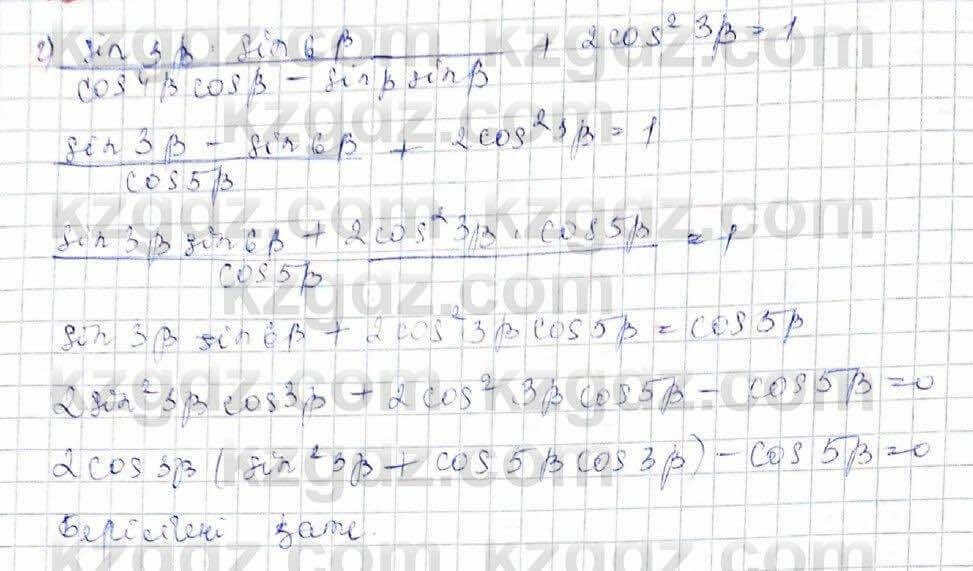 2) sin 3β · sin 6β / cos 4β cosβ - sinβ sinβ + 2cos² 3β = 1
sin 3β - sin 6β / cos 5β + 2cos² 3β = 1
sin 3β sin 6β + 2cos² 3β · cos 5β / cos 5β = 1
sin 3β sin 6β + 2cos² 3β cos 5β = cos 5β
2 sin² 3β cos 3β + 2cos² 3β cos 5β - cos 5β = 0
2cos 3β (sin² 3β + cos 5β cos 3β) - cos 5β = 0
Берілгені қате.
kzgdz.com
kzgdz.com
kzgdz.com
kzgdz.com
kzgdz.com
kzgdz.com
kzgdz.com